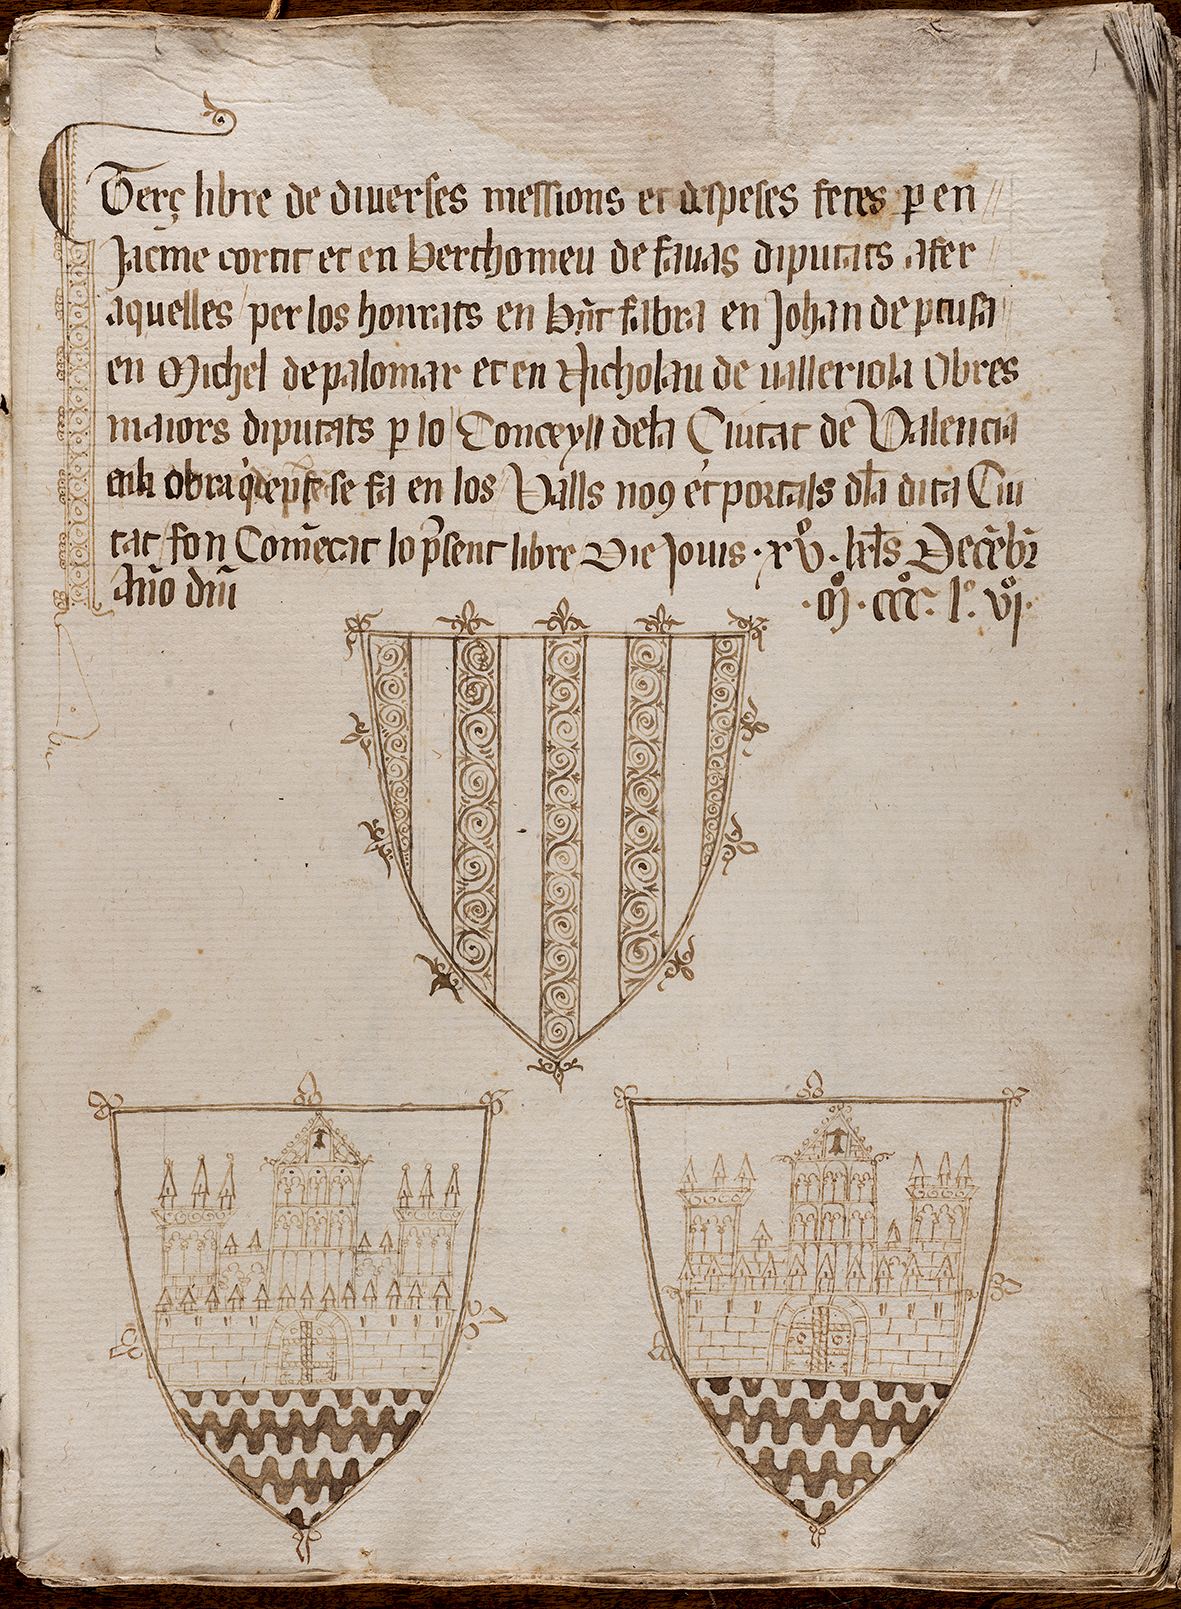 Terç libre de diuerses messions et despeses fetes p en
Jacme cortit et en Berthomeu de fauas diputats afer
aquelles per los honrats en fabra en Johan de
en Michel de palomar et en Nicholau de valleriola Obres
maiors diputats p lo Conceyll dela Ciutat de Valencia
enla obra se fa en los Valls nous et portals dla dita Ciu
tat fon Comēcat lo p̄sent libre Die Jouis · xvº · kl̄s Decēbr̄
Año dm̄i ·Mº·cccº·lº·vjº·